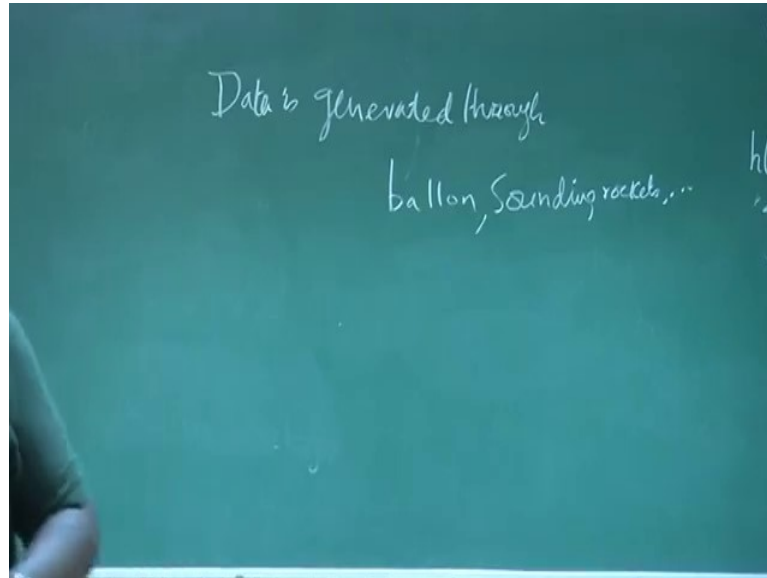 Data is generated through
ballon, Sounding rockets,...